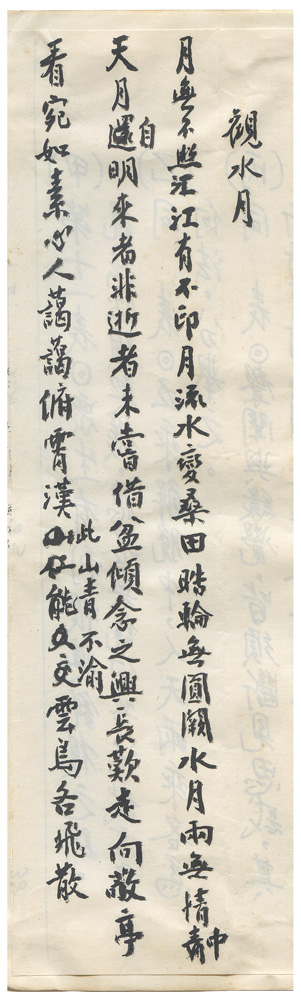 觀水月
月無不照江江有不印月流水變桑田皓輪無圓闕水月兩無情中
天月自明來者非逝者未嘗借盆傾念之興長歎走向敬亭
看宛如素心人藹藹俯霄漢此山青不渝雲鳥各飛散